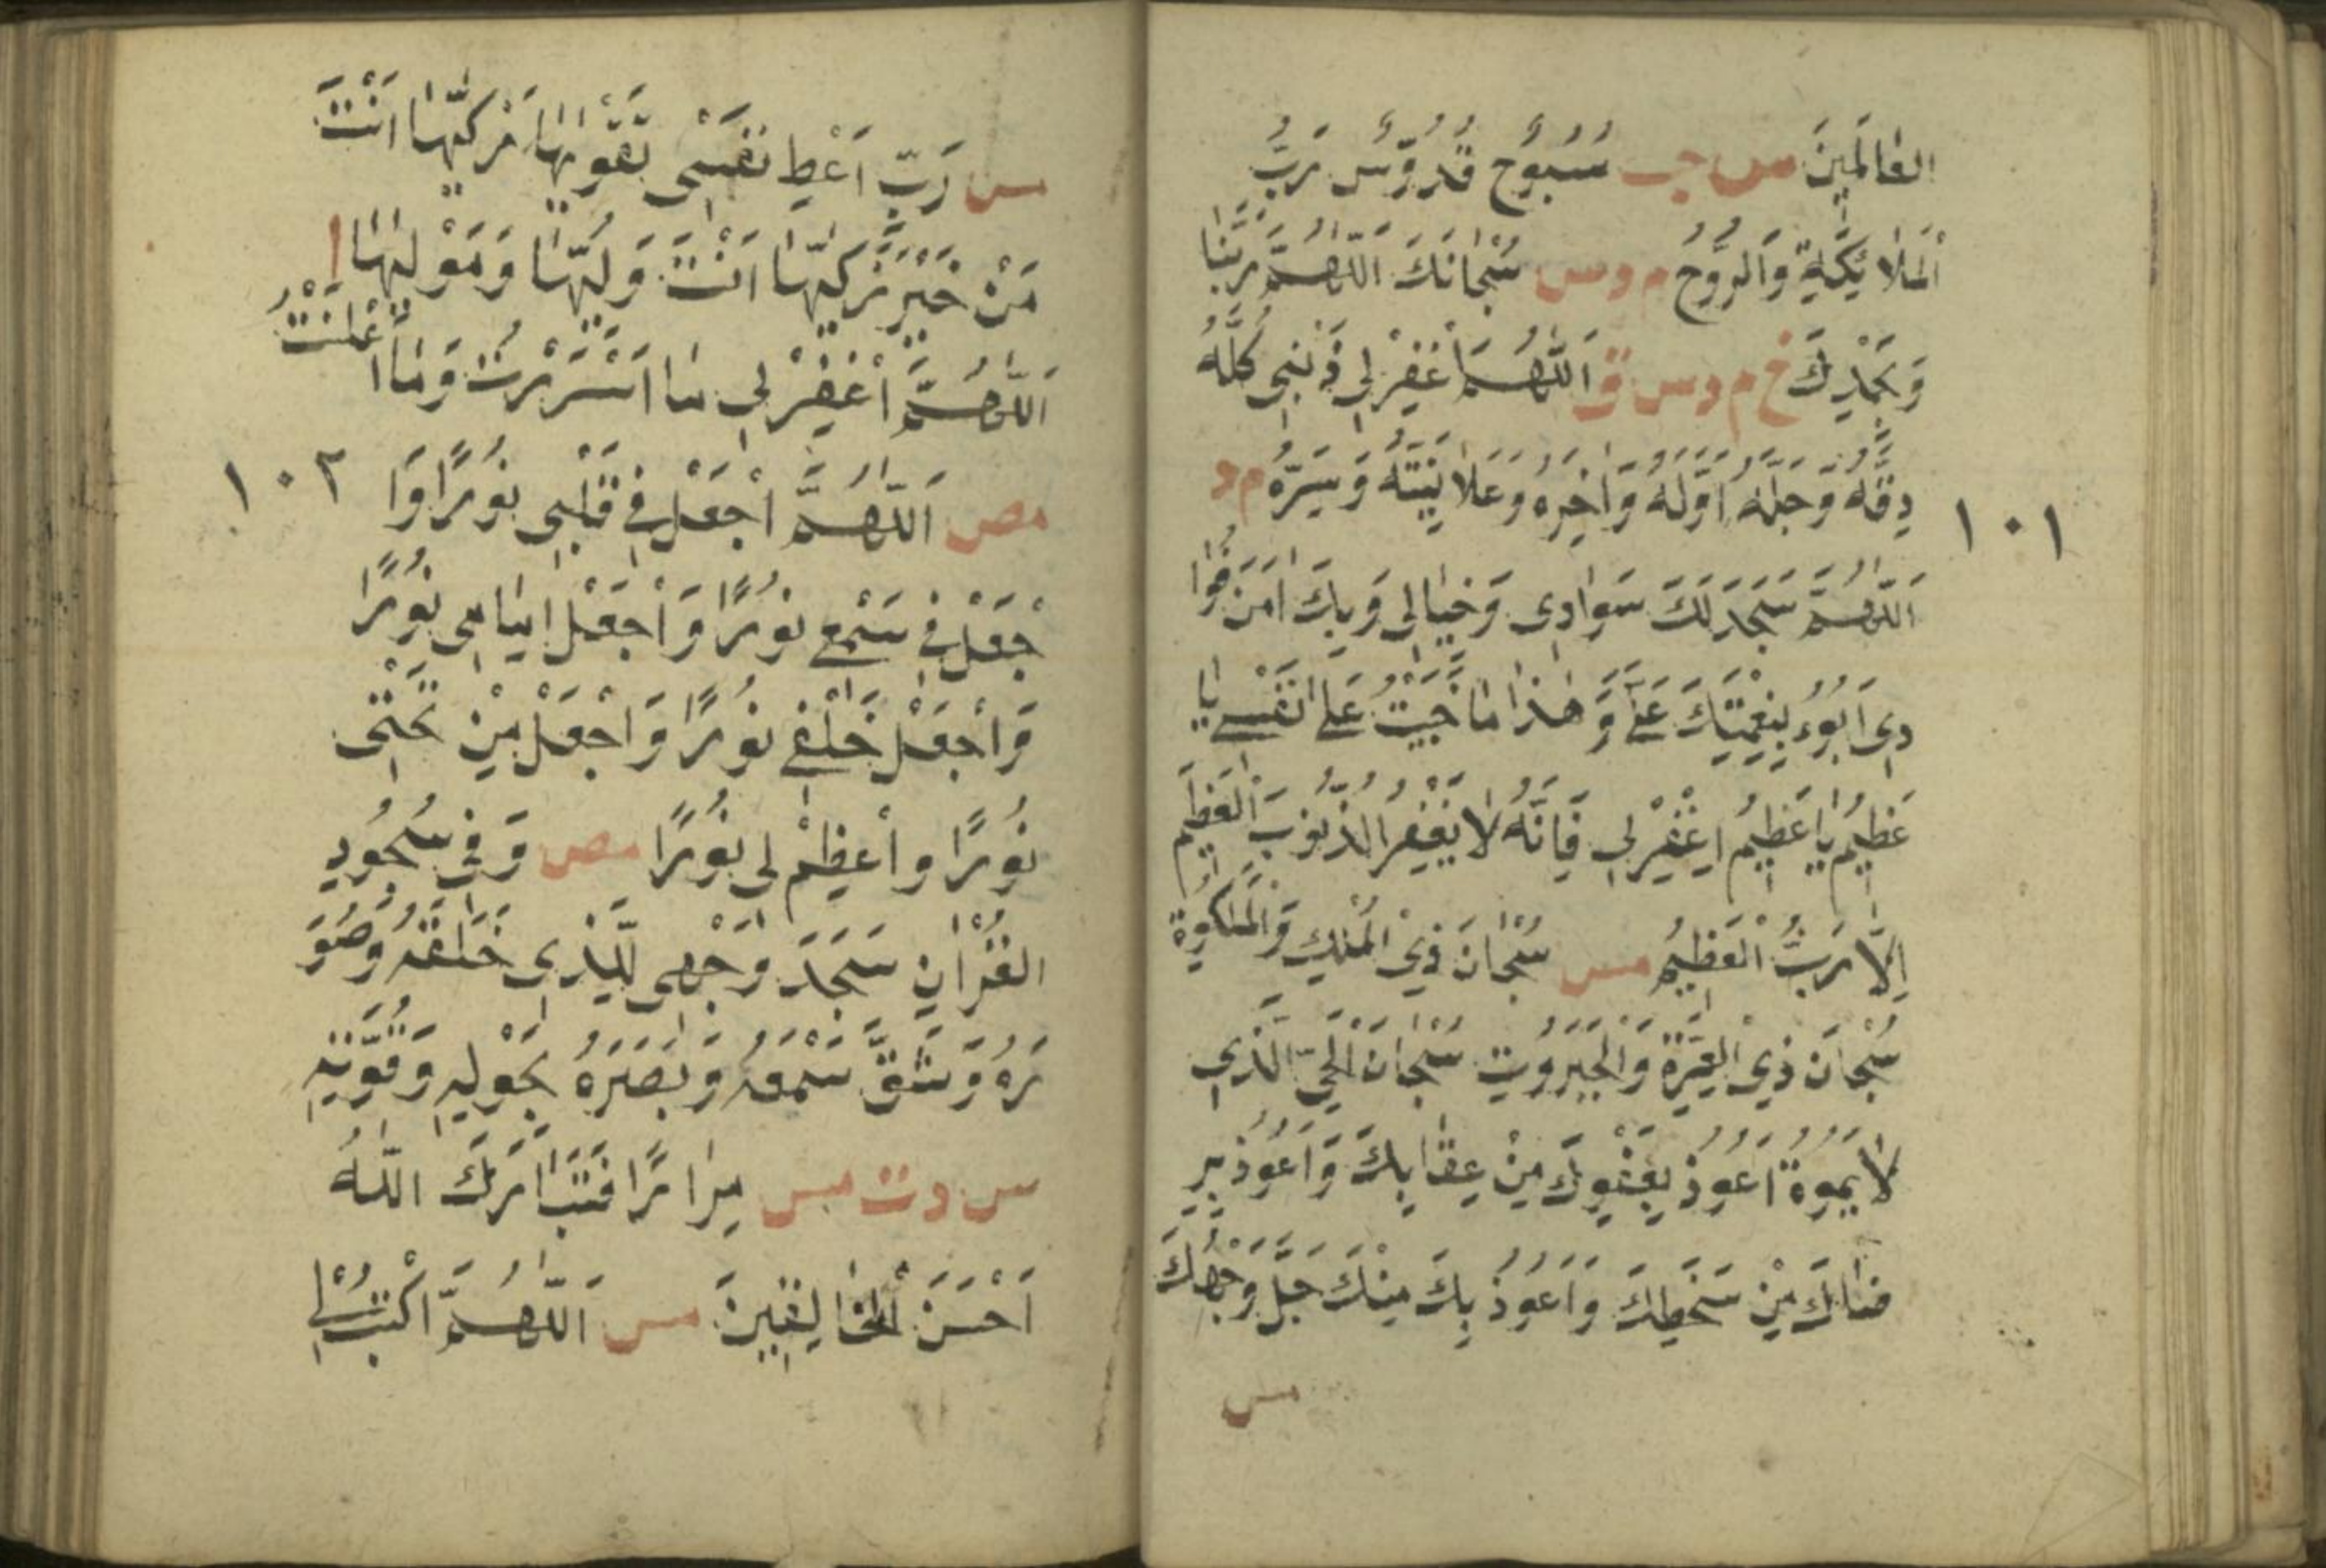 العٰالَمِينَ مس حب سُبُّوحٌ قُدُّوسٌ رَبُّ
اَلْمَلٰائِكَةِ وَالرُّوحُ م د س سُبْحٰانَكَ اَللّٰهُمَّ رَبَّنٰا
وَبِحَمْدِكَ خ م د س ق اَللّٰهُمَّ اغْفِرْ لِي ذَنْبِي كُلَّهُ
دِقَّهُ وَجِلَّهُ اَوَّلَهُ وَاٰخِرَهُ وَعَلاٰنِيَتَهُ وَسِرَّهُ م د
١٠١
اَللّٰهُمَّ سَجَدَ لَكَ سَوٰادِى وَخَيٰالِى وَبِكَ اٰمَنَ فُؤٰا
دِى اَبُوءُ بِنِعْمَتِكَ عَلَىَّ وَهٰذٰا مٰا جَنَيْتُ عَلٰى نَفْسِى يٰا
عَظِيمُ يٰا عَظِيمُ اِغْفِرْ لِى فَاِنَّهُ لٰا يَغْفِرُ الذُّنُوبَ الْعَظِيمَ
اِلَّا رَبُّ الْعَظِيمُ مس سُبْحٰانَ ذِيْ الْمُلْكِ وَالْمَلَكُوةِ
سُبْحٰانَ ذِيْ الْعِزَّةِ وَالْجَبَرُوتِ سُبْحٰانَ الْحَيِّ الَّذِي
لٰا يَمُوةُ اَعُوذُ بِعَفْوِكَ مِنْ عِقٰابِكَ وَاَعُوذُ بِرِ
ضٰاكَ مِنْ سَخَطِكَ وَاَعُوذُ بِكَ مِنْكَ جَلَّ وَجْهُكَ
مس
مس رَبِّ اَعْطِ نَفْسِى تَقْوٰيهٰا زَكِّهٰا اَنْتَ
مَنْ خَيْرُ زَكّٰيهٰا اَنْتَ وَلِيُّهٰا وَمَوْلٰيهٰا ا
اَللّٰهُمَّ اغْفِرْ لِي مٰا اَسْرَرْتُ وَمٰا اَعْلَنْتُ
١٠٢
مص اَللّٰهُمَّ اجْعَلْ فِي قَلْبِى نُورًا وَا
جْعَلْ فِي سَمْعِي نُورًا وَاجْعَلْ اَمٰامِى نُورًا
وَاجْعَلْ خَلْفِي نُورًا وَاجْعَلْ مِنْ تَحْتِى
نُورًا وأَعْظِمْ لِى نُورًا مص وَفِي سُجُودِ
القُرْاٰنِ سَجَدَ وَجْهِى لِلَّذِى خَلَقَهُ وَصَوَّ
رَهُ وَشَقَّ سَمْعَهُ وَبَصَرَهُ بِحَوْلِهِ وَقُوَّتِهِ
س د ت مس مِرٰارًا فَتَبٰارَكَ اللّٰهُ
اَحْسَنَ الْخٰالِقِينَ مس اَللّٰهُمَّ اكْتُبْ لِي